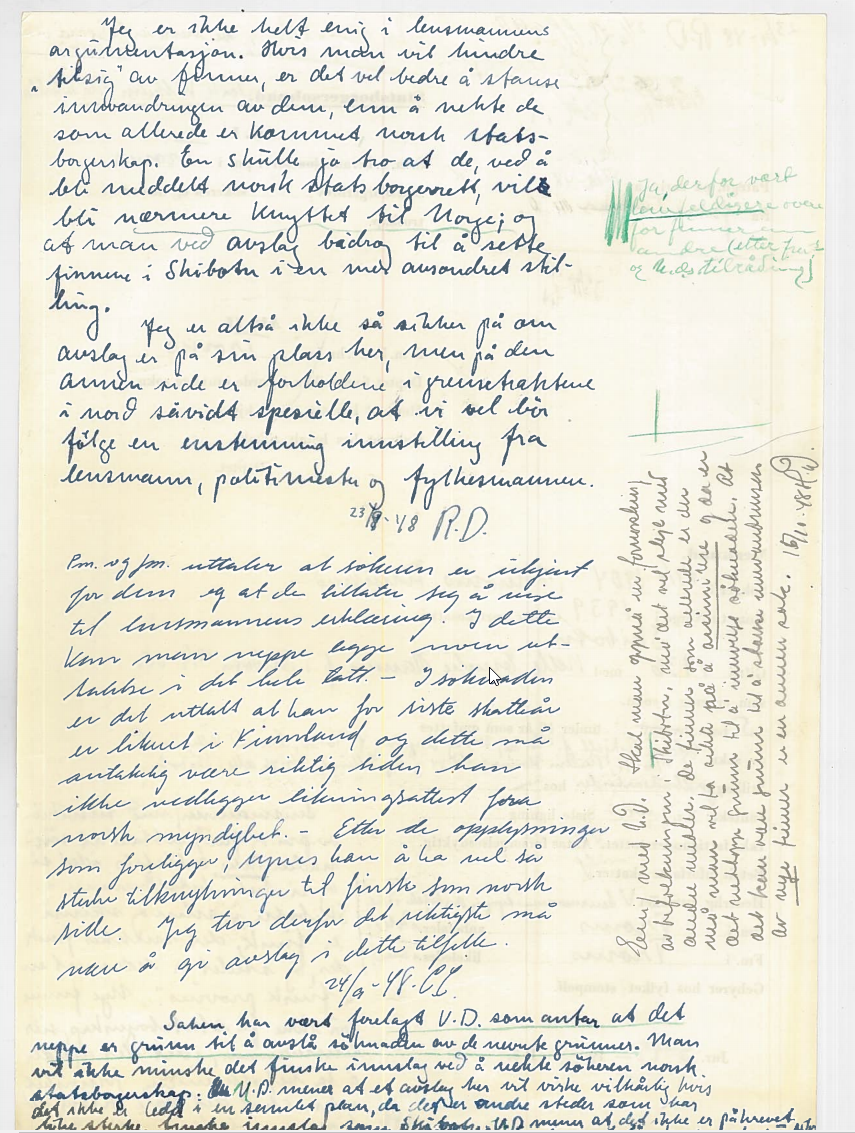 Jeg er ikke helt enig i lensmannens
argumentasjon. Hvis man vil hindre
"tilsig" av finner, er det vel bedre å stanse
innvandringen av dem, enn å nekte de
som allerede er kommet norsk stats-
borgerskap. En skulle jo tro at de, ved å
bli meddelt norsk statsborgerrett, vil
bli nærmere knyttet til Norge; og
at man ved avslag bidrog til å sette
finnene i Skibotn i en mer avsondret stil-
ling.
Jeg er altså ikke så sikker på om
avslag er på sin plass her, men på den
annen side er forholdene i grensetraktene
i nord såvidt spesielle, at vi vel bör
fölge en enstemmig innstilling fra
lensmann, politimester og fylkesmannen.
23/9-48 R.D.
Pm. og fm. uttaler at sökeren er ukjent
for dem og at de tillater seg å vise
til lensmannens erklæring. I dette
kan man neppe legge noen ut-
talelse i det hele tatt. - I söknaden
er det uttalt at han for siste skatteår
er liknet i Finnland og dette må
antakelig være riktig siden han
ikke vedlegger likningsattest fra
norsk myndighet. - Etter de opplysninger
som foreligger, synes han å ha vel så
sterke tilknytninger til finsk som norsk
side. Jeg tror derfor det riktigste må
være å gi avslag i dette tilfelle.
24/9-48
Saken har vært forelagt U.D. som antar at det
neppe er grunn til å avslå söknaden av de nevnte grunner. Man
vil ikke minske det finske innslag ved å nekte sökeren norsk
statsborgerskap. U.D. mener at et avslag her vil virke vilkårlig hvis
det ikke er ledd i en samlet plan, da det er andre steder som har
like sterke finske innslag som Skibotn. U.D. mener at det ikke er påkrevet
Ja, derfor vært
overs
for finner enn
andre (etter
og U.D.s tilråding)
Enig med U.D. Skal man oppnå en fornorsking
av befolkningen i Skibotn, må det vel skje med
andre midler. De finner som allerede er der
må man vel ta sikte på å assimilere og da er
det nettopp grunn til å innvilge söknaden. At
det kan være grunn til å stanse innvandringen
av nye finner er en annen sak. 15/11-48